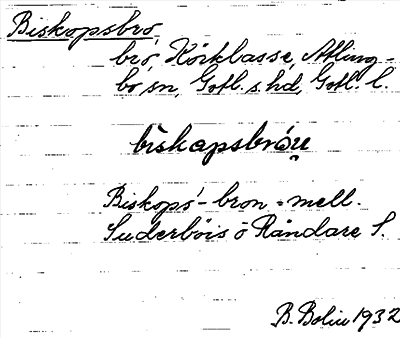 Biskopsbro,
bro, Körklasse, Atling-
bo sn, Gotl. s. hd, Gotl. l.
biskapsbrou̯
Biskops-bron = mell.
Suderböis ō Rändare S.
B. Bolin 1932